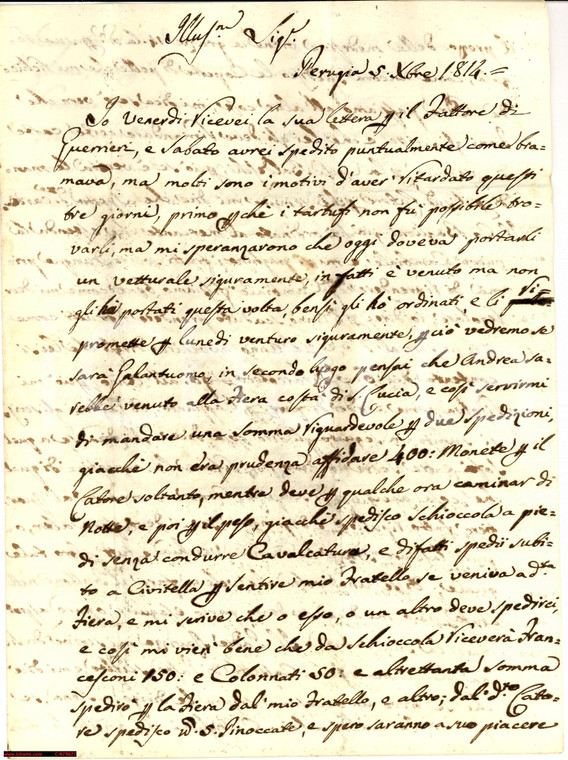 Illus.mo Sig.e
Perugia 5. Xbre 1814. =
Io Venerdi Ricevei la sua lettera p il Fattore di
Guerrieri, e Sabato avrei spedito puntualmente come bra=
mava, ma molti sono i motivi d'aver ritardato questi
tre giorni, primo pchè i tartufi non fù possibile tro=
varli, ma mi speranzarono che oggi doveva portarli
un vetturale siguramente, in fatti è venuto ma non
gli hà portati questa volta, bensi gli hò ordinati, e li
promette p lunedi venturo siguramente, p ciò vedremo se
sarà Galantuomo, in secondo luogo pensai che Andrea sa=
rebbe venuto alla Fiera costà di S. Lucia, e così servirmi
di mandare una somma riguardevole p due spedizioni,
giacchè non era prudenza affidare 400: Monete p il
Latore soltanto, mentre deve p qualche ora caminar di
Notte, e poi p il peso, giacchè spedisco Schioccola a pie=
di senza condurre Cavalcatura, e difatti spedii subi=
to a Civitella p sentire mio Fratello se veniva a d.ta
Fiera, e mi scrive che o esso, o un altro deve spedirci,
e così mi vien bene che da Schioccola riceverà Fran=
cesconi 150: e Colonnati 50: e altrettanta somma
spedirò p la Fiera dal mio Fratello, e altro; dal d.to Lato=
re spedisco 5. Pinoccate, e spero saranno a suo piacere
www.bibenix.com